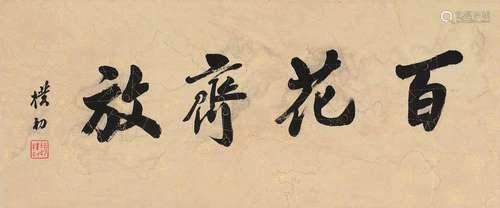 百花齊放
樸初